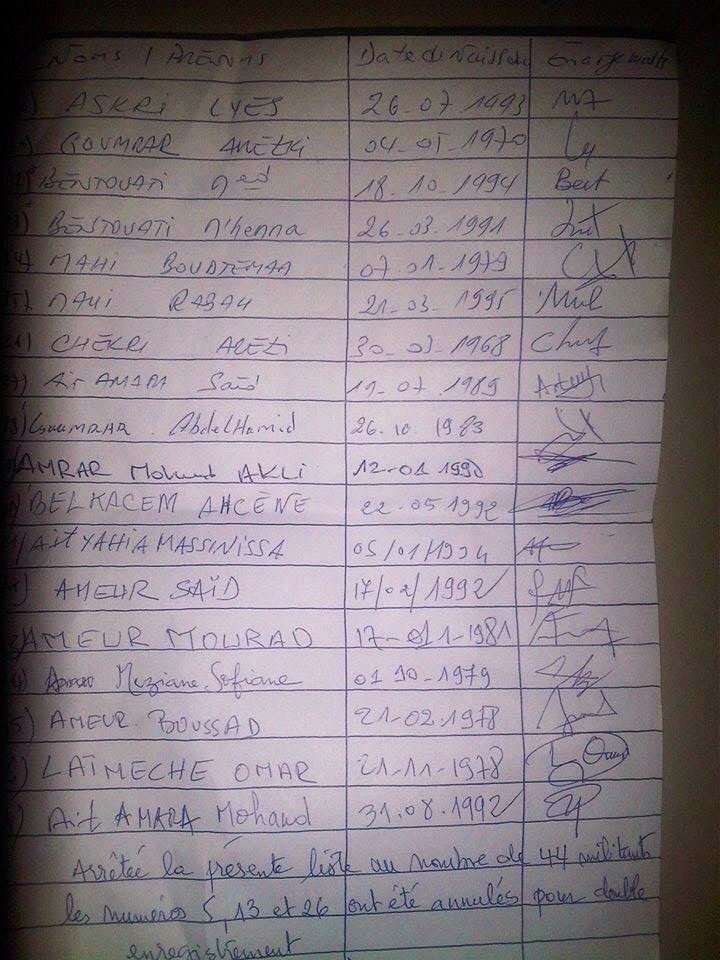 Noms / Prénoms Date de Naissa Emargements
ASKRI LYES 26-07-1993
GOUMRAR AMEZKI 04-05-1970
BENTOUATI Med 18.10.1994 Bent
3) BENTOUATI n'henna 26-03.1991
4) MAHI BOUDJEMAA 07.01-1979
5) MAHI RABAH 21-03.1995
CHEKRI AREZKI 1968
37) Ait AMARA Said 19-07.1989
38) Goumrar AbdelHamid 26.10.1983
AMRAR Mohand AKLI 12-01 1990
BELKACEM AHCÈNE 22.05 1992
Ait YAHIA MASSINISSA 05/01/1994
AMEUR SAÏD 17/02/1992
3 AMEUR MOURAD 17-01-1981
4) Meziane Sofiane 01 10-1979
5) AMEUR BOUSSAD 21-02.1978
6) LAÏMECHE OMAR 21-11-1978
Ait AMARA Mohand 31.08.1992
Arrêtée la présente liste au nombre de 44 militants
les numéros 5, 13 et 26 ont été annulés pour double
enregistrement